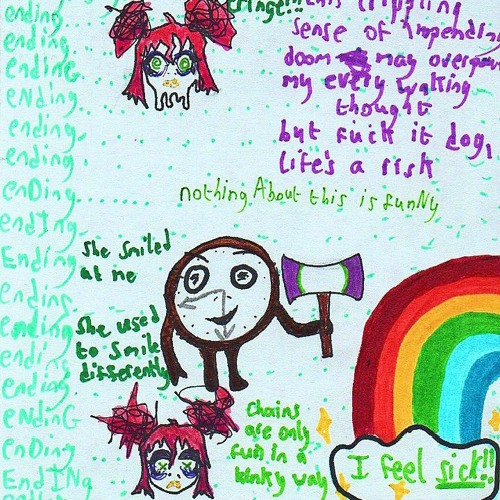 ending
ending
ending
ending
ending
ending
enDing
endIng
Ending
Ending
ending
ending
ending
eNDinG
enDing
EndINg
cringe!!!
this crippling
sense of impending
doom may overpower
my every waking
thought
but fuck it dog,
life's a risk
nothing About this is funNy
She smiled
at me
She used
to smile
differently
Chains
are only
fun in a
kinky way
I feel sick!!